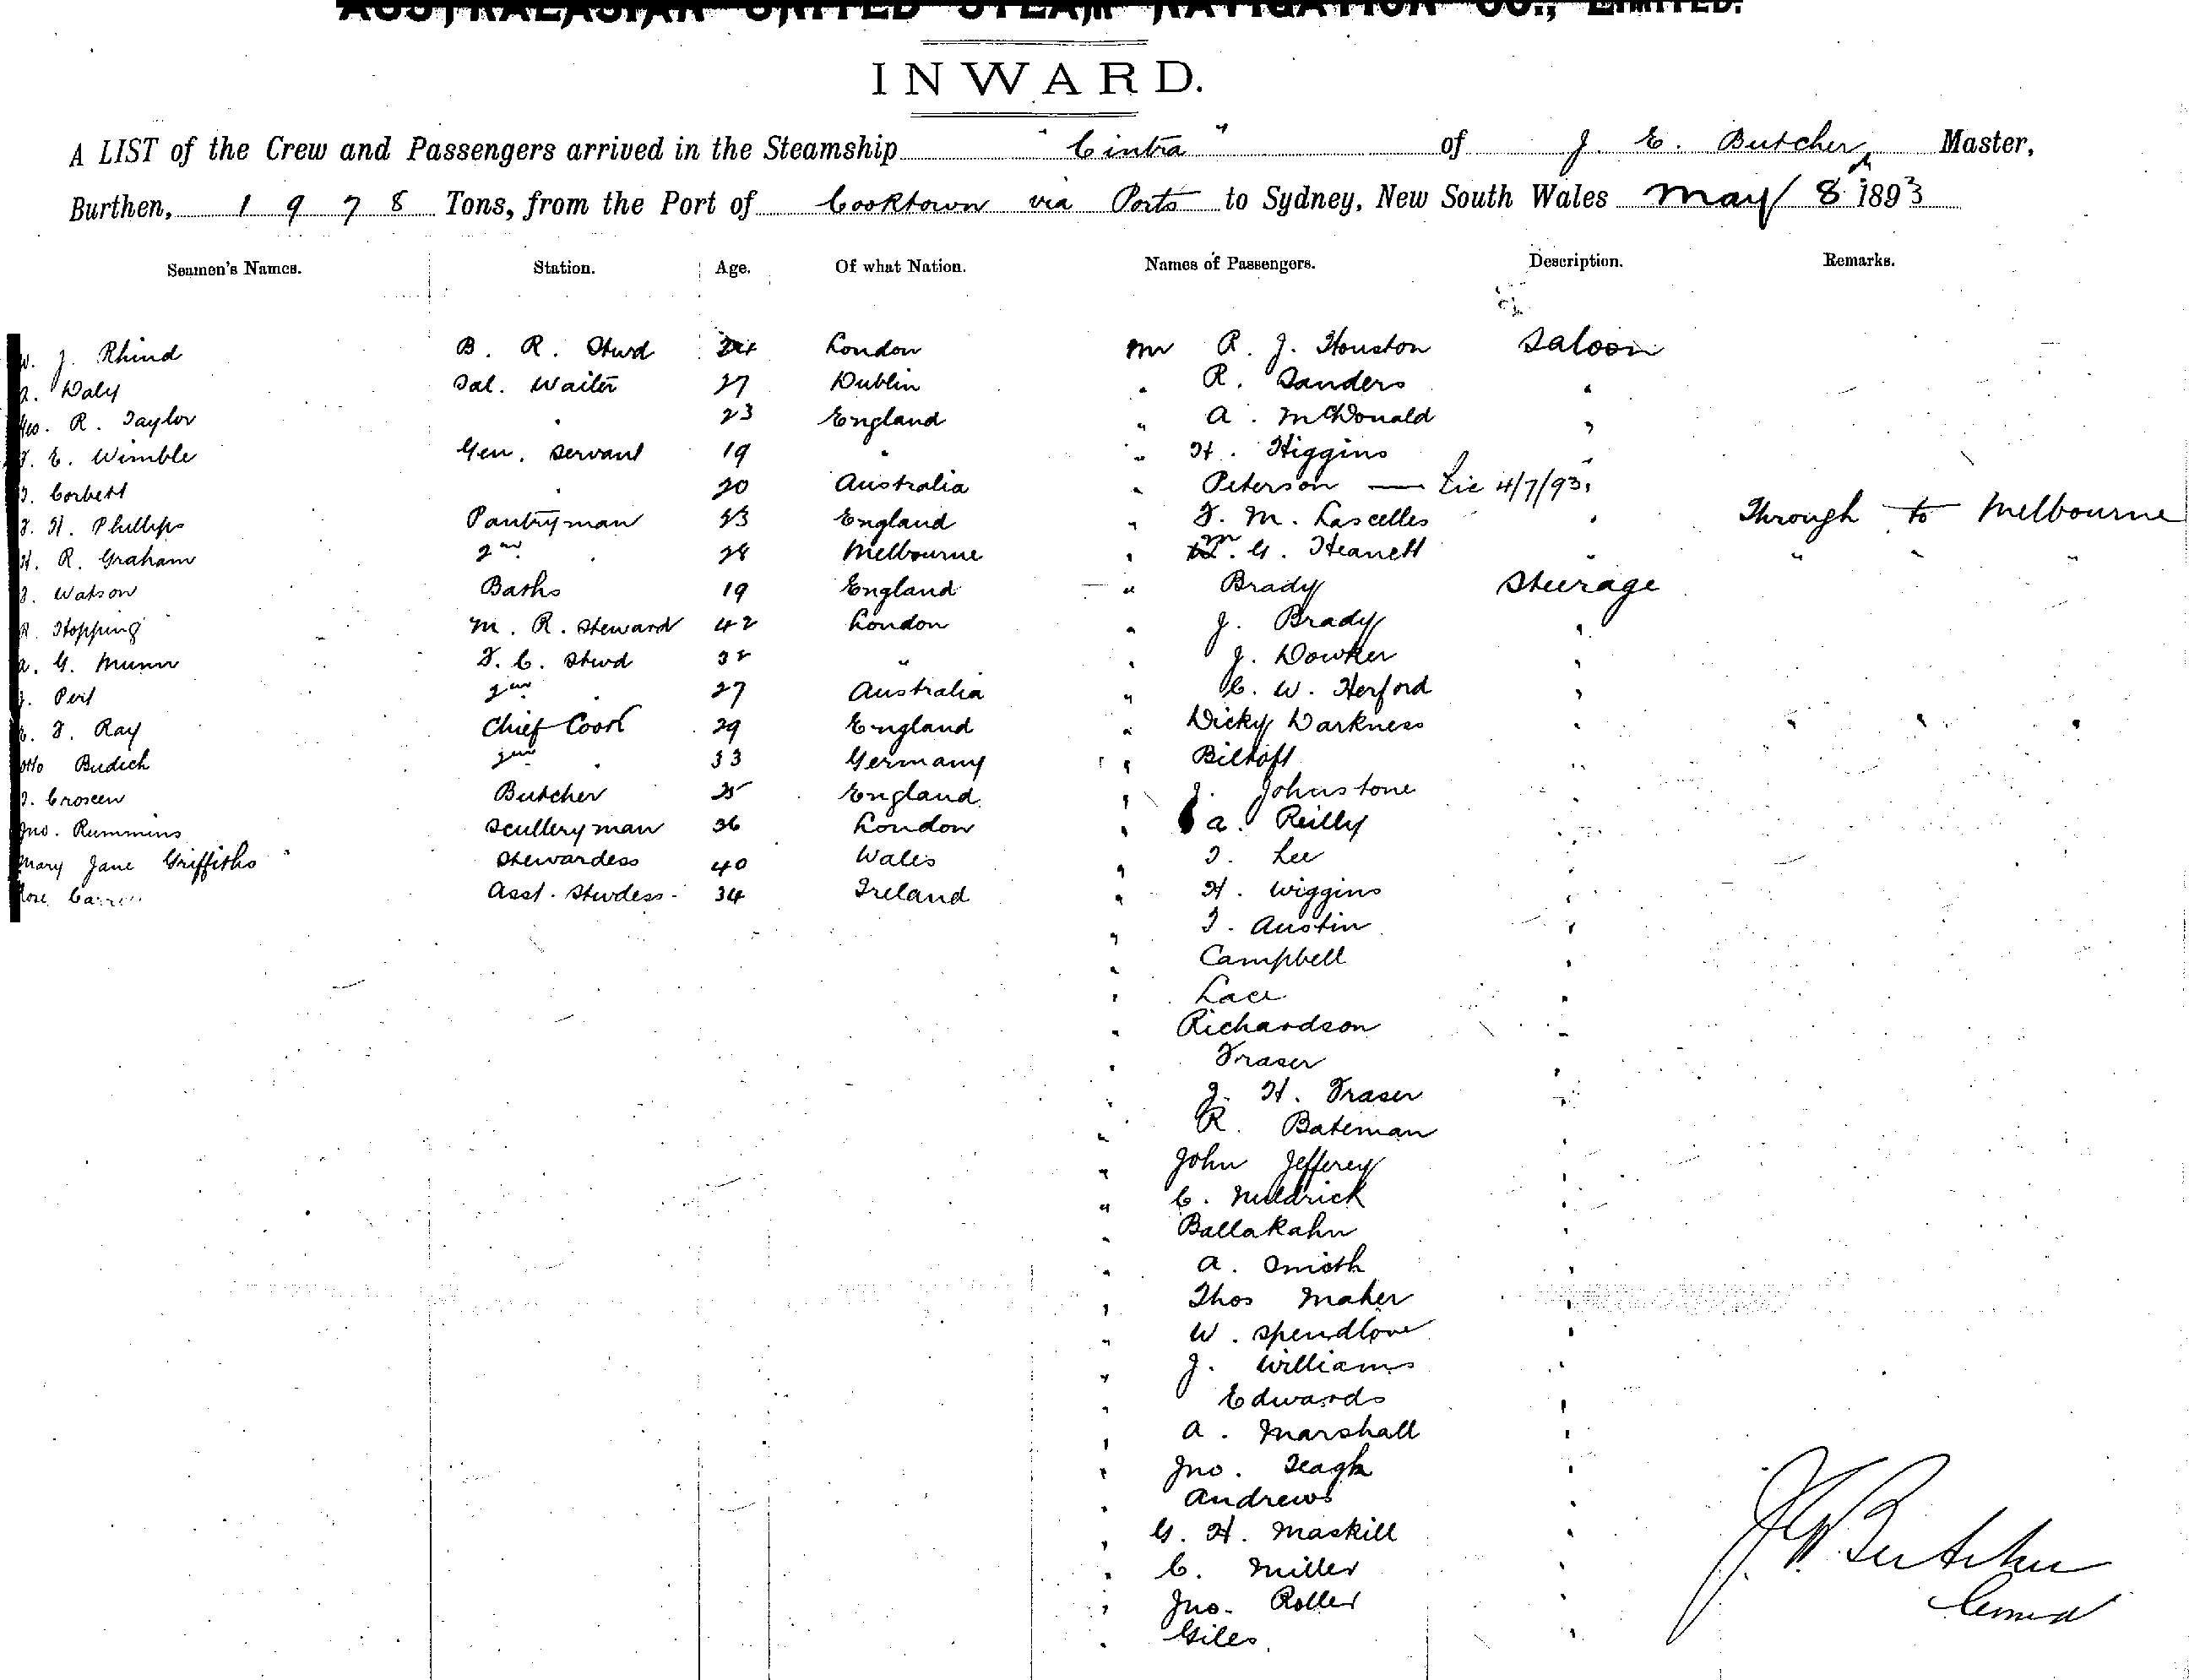 AUSTRALASIAN UNITED STEAM NAVIGATION CO., LIMITED.
INWARD.
A LIST of the Crew and Passengers arrived in the Steamship "Cintra" of J. E. Butcher, Master,
Burthen, 1978 Tons, from the Port of Cooktown via Ports to Sydney, New South Wales May 8 1893
Seamen's Names. Station. Age. Of what Nation. Names of Passengers. Description. Remarks.
W. J. Rhind B. R. Stwd London Mr R. J. Houston Saloon
Daly Sal. Waiter 27 Dublin " R. Sanders "
Geo. R. Taylor " 23 England " A. McDonald "
E. Wimble Gen. Servant 19 " " H. Higgins "
Corbett " 20 Australia " Peterson — Tic 4/7/93 "
H. Phillips Pantryman 23 England " F. M. Lascelles " Through to Melbourne
H. R. Graham 2nd " 28 Melbourne " G. Heanett " " " "
Watson Baths 19 England " Brady Steerage
R. Hopping M. R. Steward 42 London " J. Brady "
A. G. Munn F. C. Stwd 32 " " J. Dowker "
Peit 2nd " 27 Australia " C. W. Herford "
F. Ray Chief Cook 29 England " Dicky Darkness " " " "
Otto Budich 2nd " 33 Germany " Biltoft "
Croseen Butcher 25 England " J. Johnstone "
Jno. Rummins Sculleryman 36 London " A. Reilly "
Mary Jane Griffiths Stewardess 40 Wales " J. Lee "
Rose Asst. Stwdess 34 Ireland " H. Wiggins "
" J. Austin "
" Campbell "
" Lace "
" Richardson "
" Fraser "
" J. H. Fraser "
" R. Bateman "
" John Jefferey "
" C. Muldrick "
" Ballakahn "
" A. Smith "
" Thos Maher "
" W. Spendlove "
" J. Williams "
" Edwards "
" A. Marshall "
" Jno. "
" Andrews "
" G. H. Maskill "
" C. Miller "
" Jno. Roller "
" Giles "
J. E. Butcher